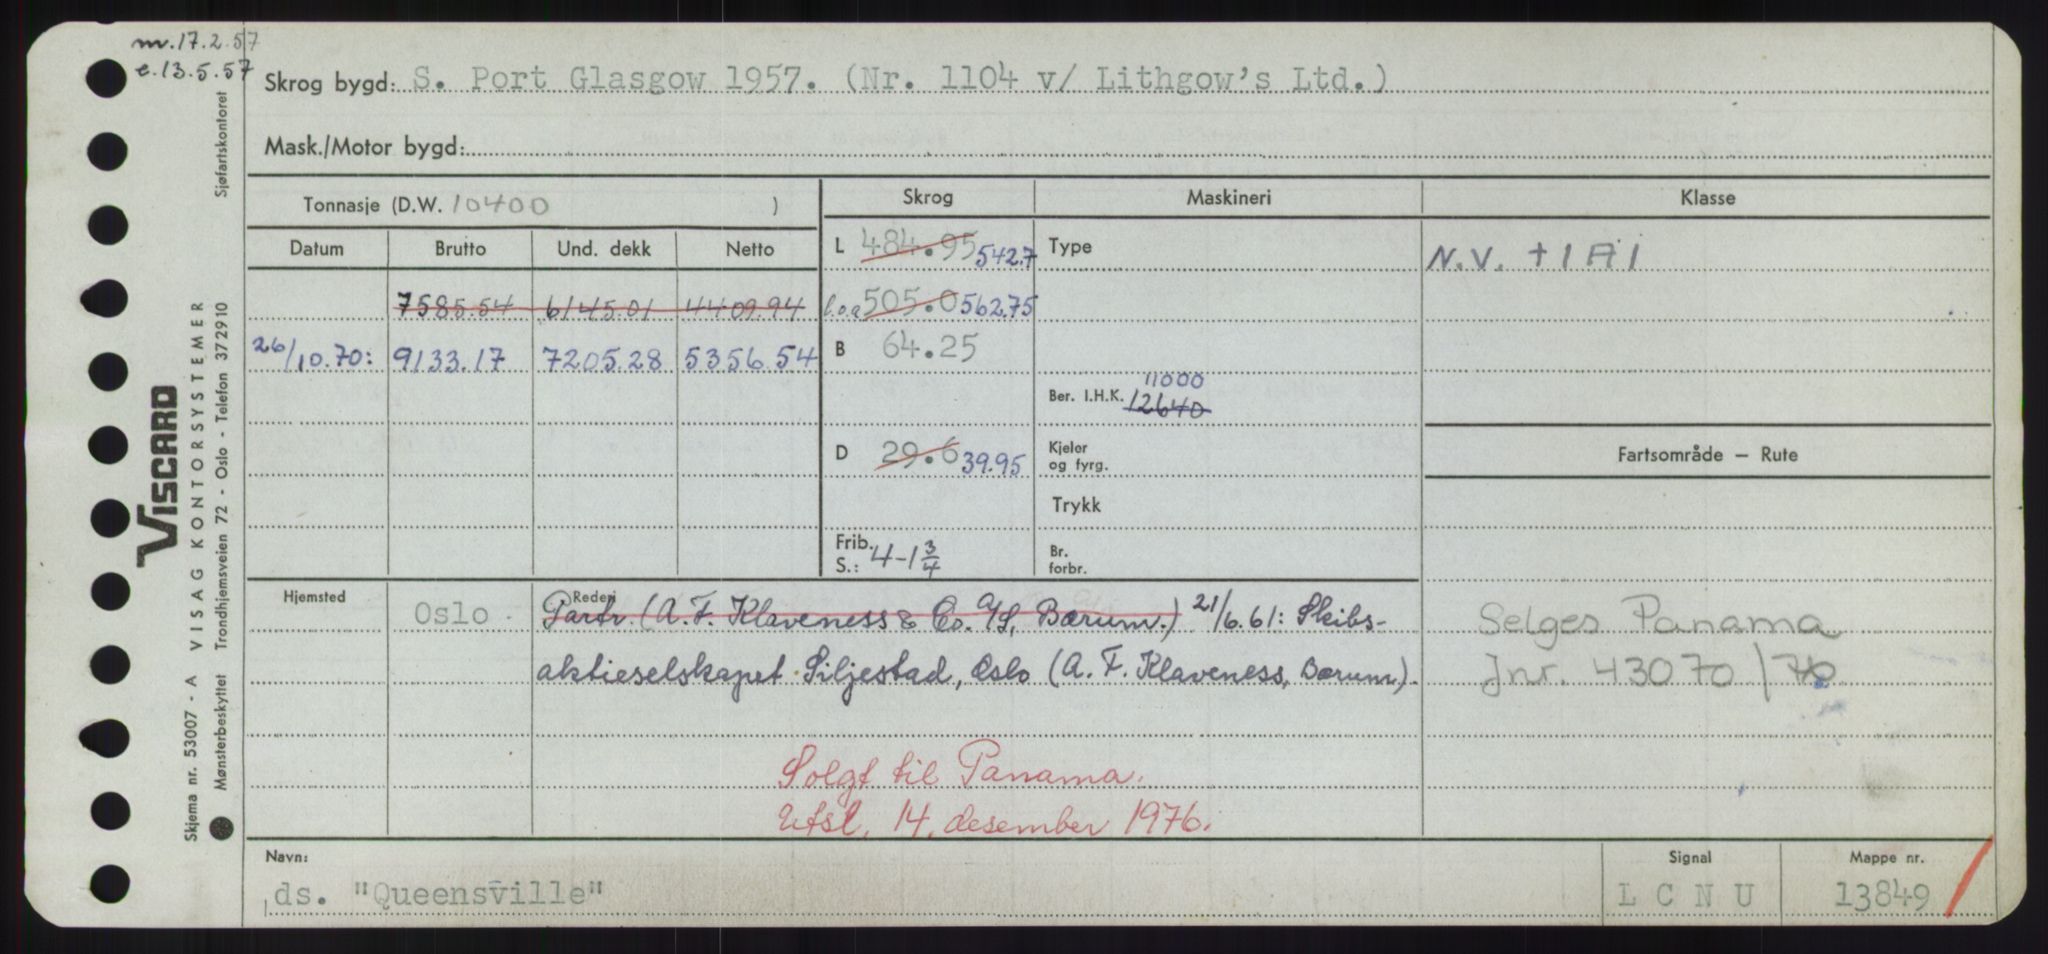 m. 17.2.57
e. 13.5.57
Skrog bygd: S. Port Glasgow 1957. (Nr. 1104 v/ Lithgow's Ltd.)
Mask./Motor bygd:
Tonnasje (D.W. 10400 )
Skrog
Maskineri
Klasse
Datum Brutto Und. dekk Netto
L 484.95 542.7
Type
N.V. +1A1
7585.54 6145.01 4409.94
l.o.a 505.0 562.75
26/10.70: 9133.17 7205.28 5356.54
B 64.25
11000
Ber. I.H.K. 12640
D 29.6 39.95
Kjeler
og fyrg.
Fartsområde — Rute
Trykk
Frib.
S.: 4-1 3/4
Br.
forbr.
Hjemsted
Oslo
Rederi
Partr. (A. F. Klaveness & Co. A/S, Bærum.) 21/6.61: Skibs-
aktieselskapet Siljestad, Oslo (A. F. Klaveness, Bærum).
Selges Panama
Jnr. 43070/76
Solgt til Panama.
Utsl. 14. desember 1976.
Navn:
ds. "Queensville"
Signal
L C N U
Mappe nr.
13849
VISCARD
VISAG KONTORSYSTEMER
Sjøfartskontoret
Trondhjemsveien 72 - Oslo - Telefon 372910
Skjema nr. 53007 - A
Mønsterbeskyttet